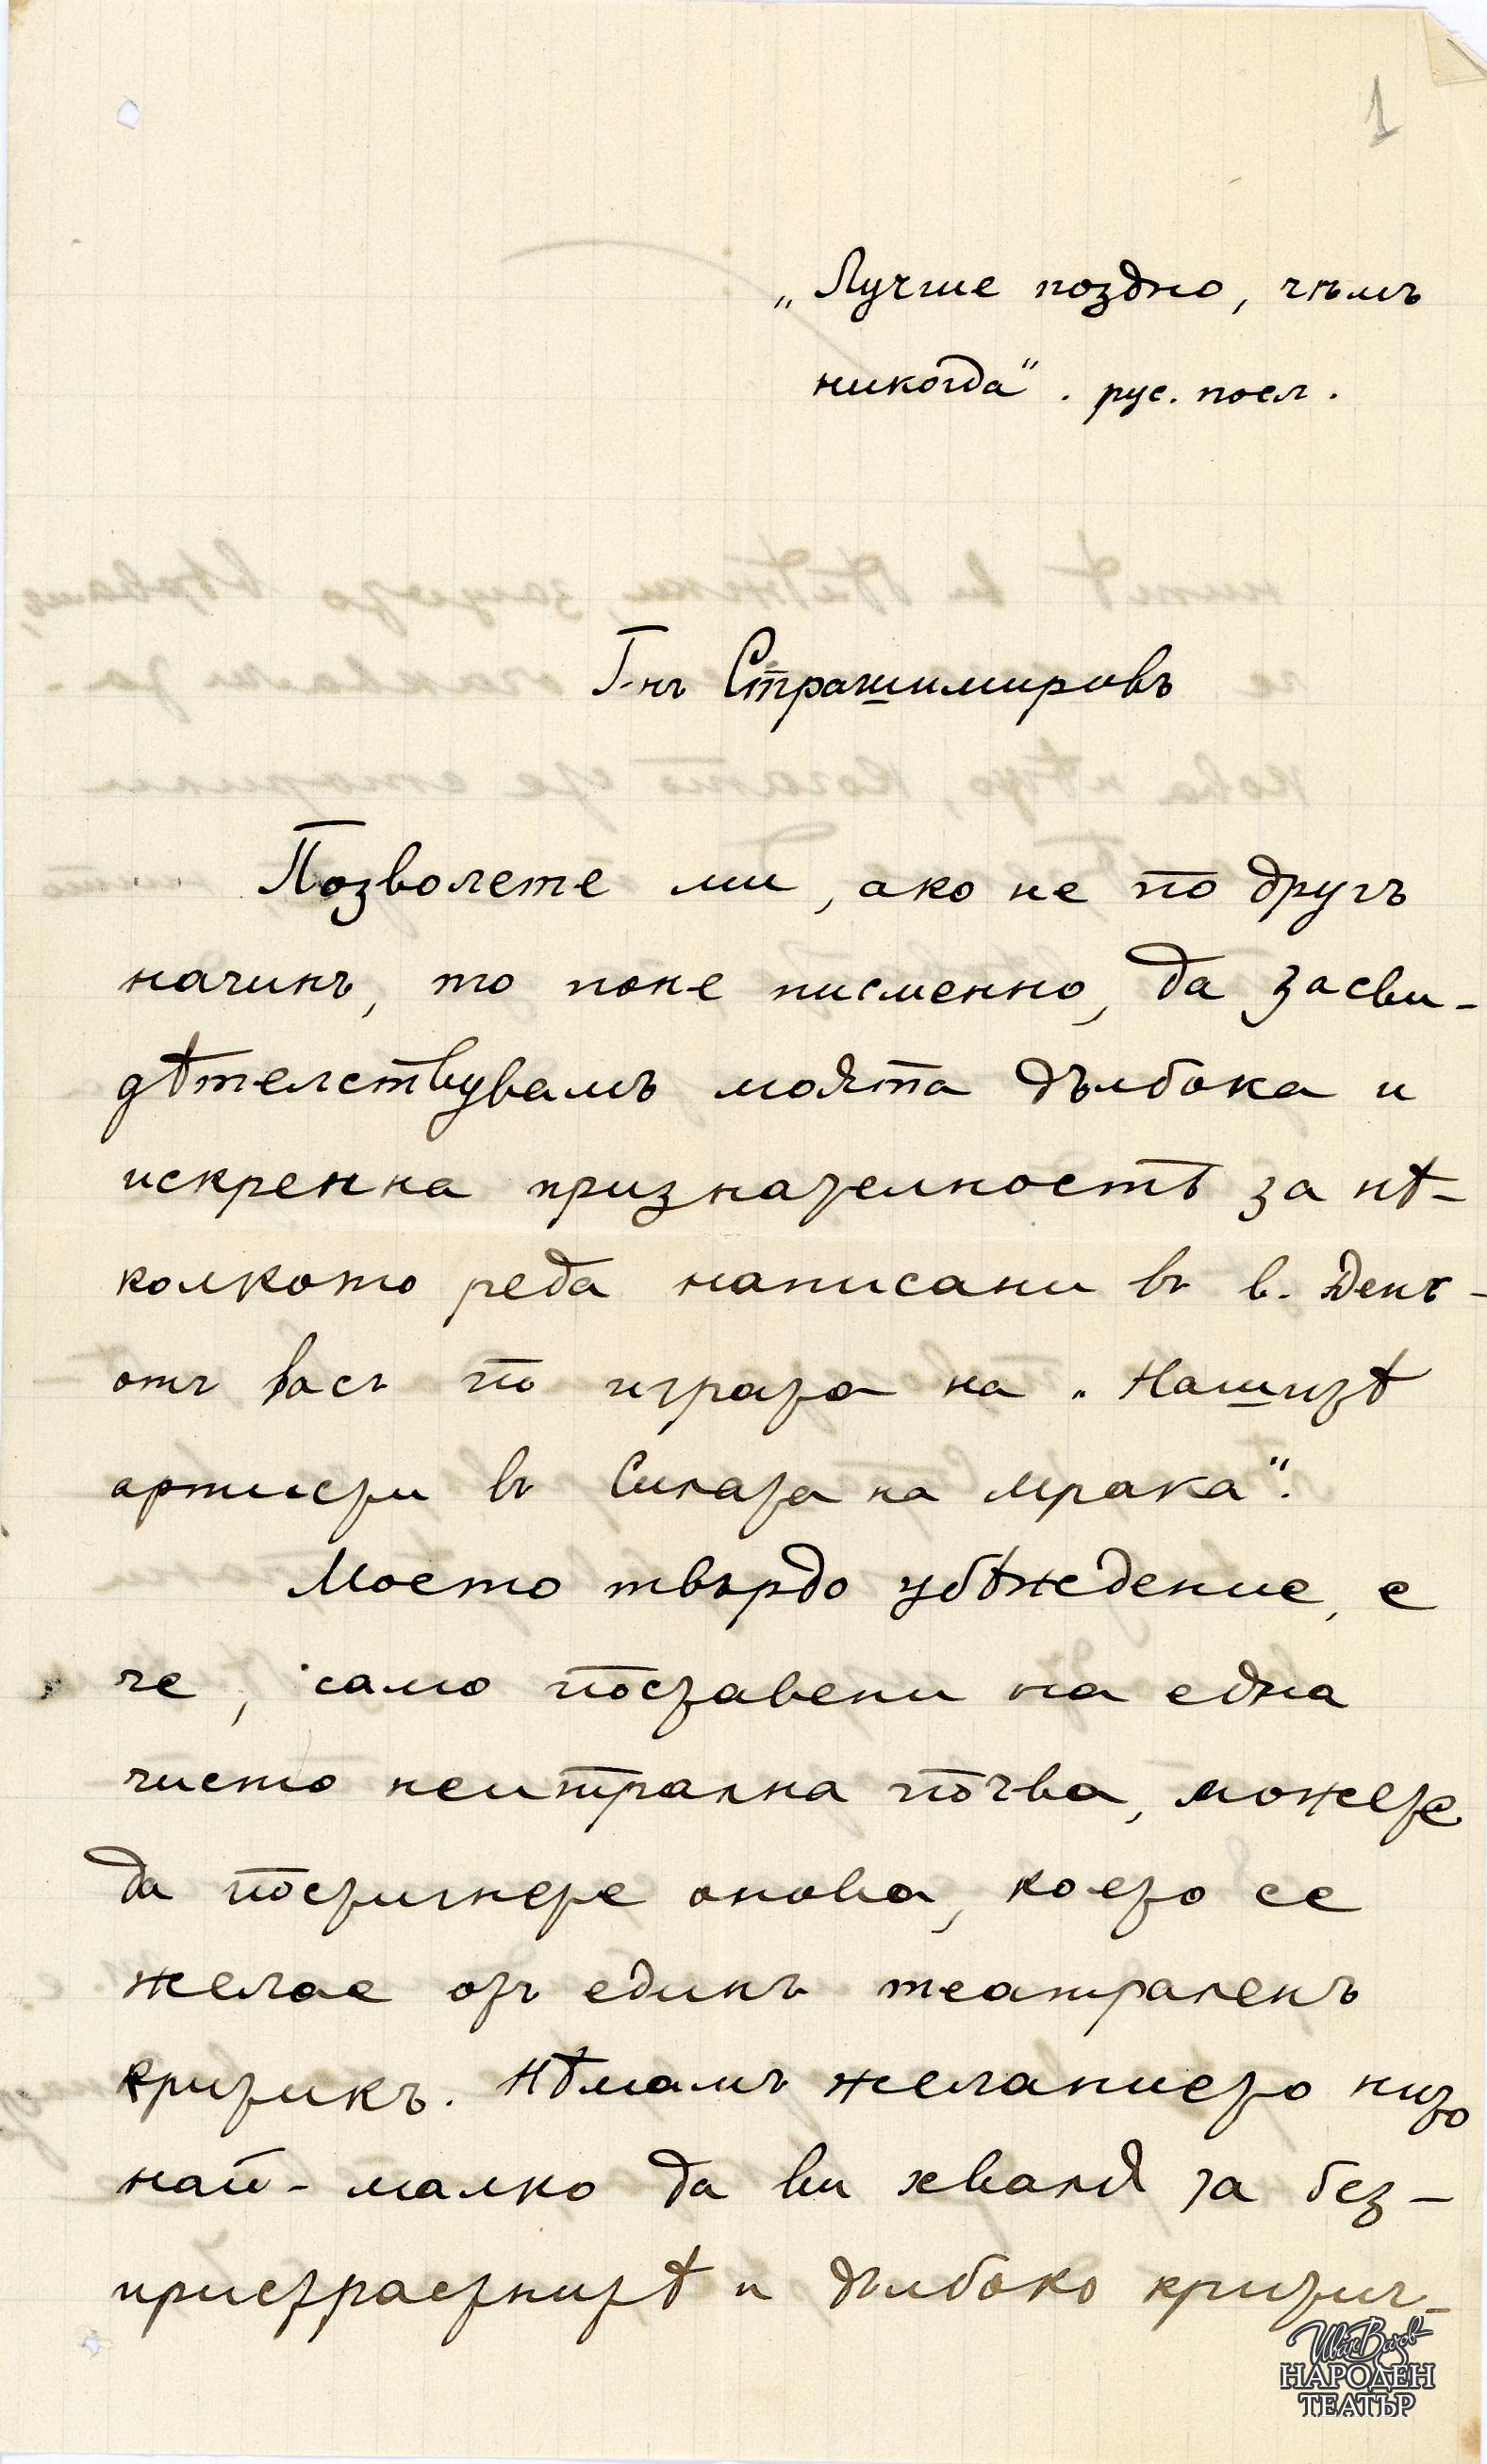 1
„Лучше поздно, чѣмъ
никогда“. рус. посл.
Г-нъ Страшимировъ
Позволете ми, ако не по другъ
начинъ, то поне писменно, да засви-
дѣтелствувамъ моята дълбока и
искренна признателность за нѣ-
колкото реда написани въ в. День -
отъ васъ по играта на „Нашитѣ
артисти въ Силата на мрака“.
Моето твърдо убѣждение, е
че, само поставени на една
чисто неитрална почва, можете
да постигнете онова, което се
желае отъ единъ театраленъ
критикъ. Нѣмамъ желанието нито
най-малко да ви хваля за без-
пристрастнитѣ и дълбоко критич-
Иван Вазов
НАРОДЕН
ТЕАТЪР